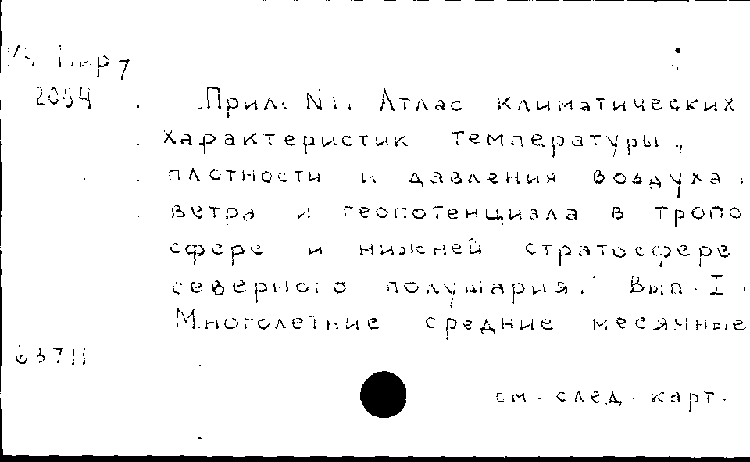 2054
Прил. N1. Атлас климатических
характеристик температуры,
плотности и давления воздуха,
ветра и геопотенциала в тропо
сфере и нижней стратосфере
северного полушария. Вып. I.
Многолетние средние месячные
63711
см. след. карт.